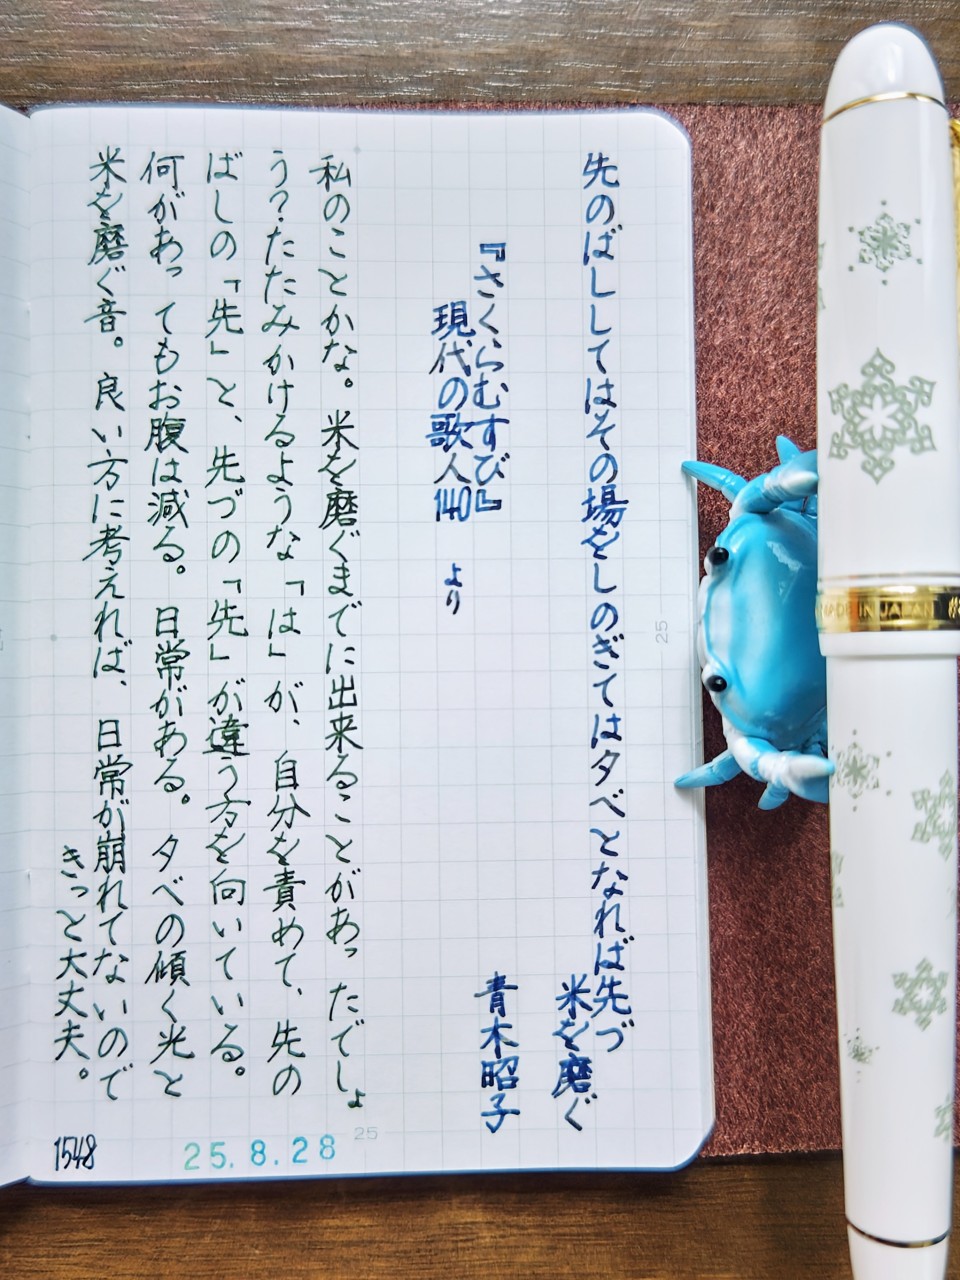 先のばししてはその場をしのぎては夕べとなれば先づ
米を磨ぐ
青木昭子
『さくらむすび』
現代の歌人140 より
私のことかな。米を磨ぐまでに出来ることがあったでしょ
う？たたみかけるような「は」が、自分を責めて、先の
ばしの「先」と、先づの「先」が違う方を向いている。
何があってもお腹は減る。日常がある。夕べの傾く光と
米を磨ぐ音。良い方に考えれば、日常が崩れてないので
きっと大丈夫。
1548
25.8.28
25
25
MADE IN JAPAN